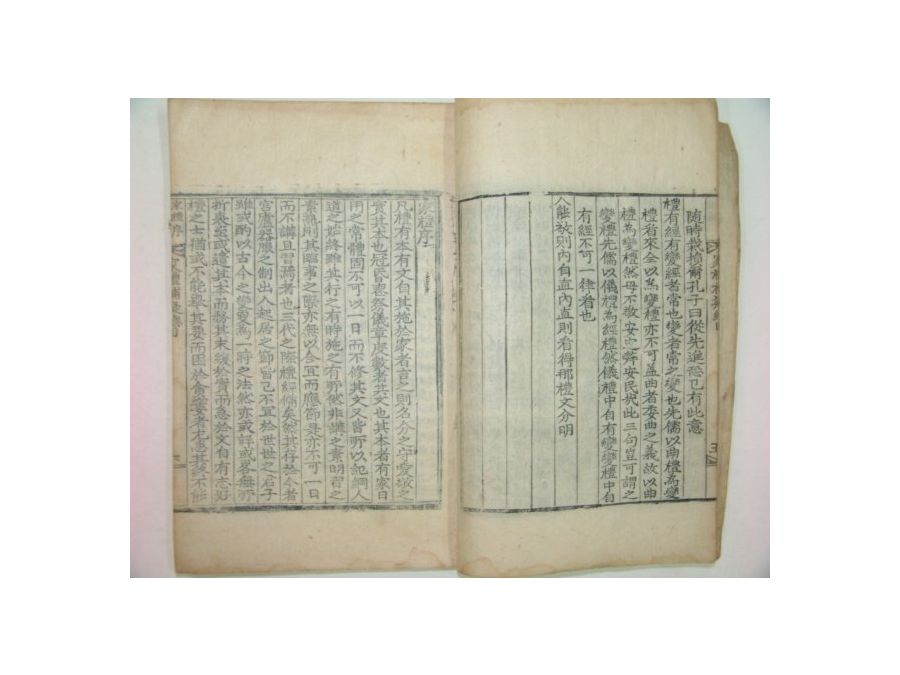 随時裁損爾孔子曰從先進恐已有此意
禮有經有變經者常也變者常之變也先儒以曲禮為變
禮看來全以為變禮亦不可盖曲者委曲之義故以曲
禮為變禮然毋不敬安定辭安民哉此三句豈可謂之
變禮先儒以儀禮為經禮然儀禮中自有變變禮中自
有經不可一律看也
人能放則內自直內直則看得那禮文分明
家禮序
凡禮有本有文自其施於家者言之則名分之守愛敬之
實其本也冠昏喪祭儀章度數者其文也其本者有家日
用之常體固不可以一日而不修其文又皆所以紀綱人
道之始終雖其行之有時施之有所然非講之素明習之
素熟則其臨事之際亦無以合宜而應節是亦不可一日
而不講且習焉者也三代之際禮經備矣然其存於今者
宮廬器服之制出入起居之節皆已不宜於世世之君子
雖或酌以古今之變更為一時之法然亦或詳或略無所
折衷至或遺其本而務其末緩於實而急於文自有志好
禮之士猶或不能舉其要而困於貧窶者尤患其終不能
家禮序